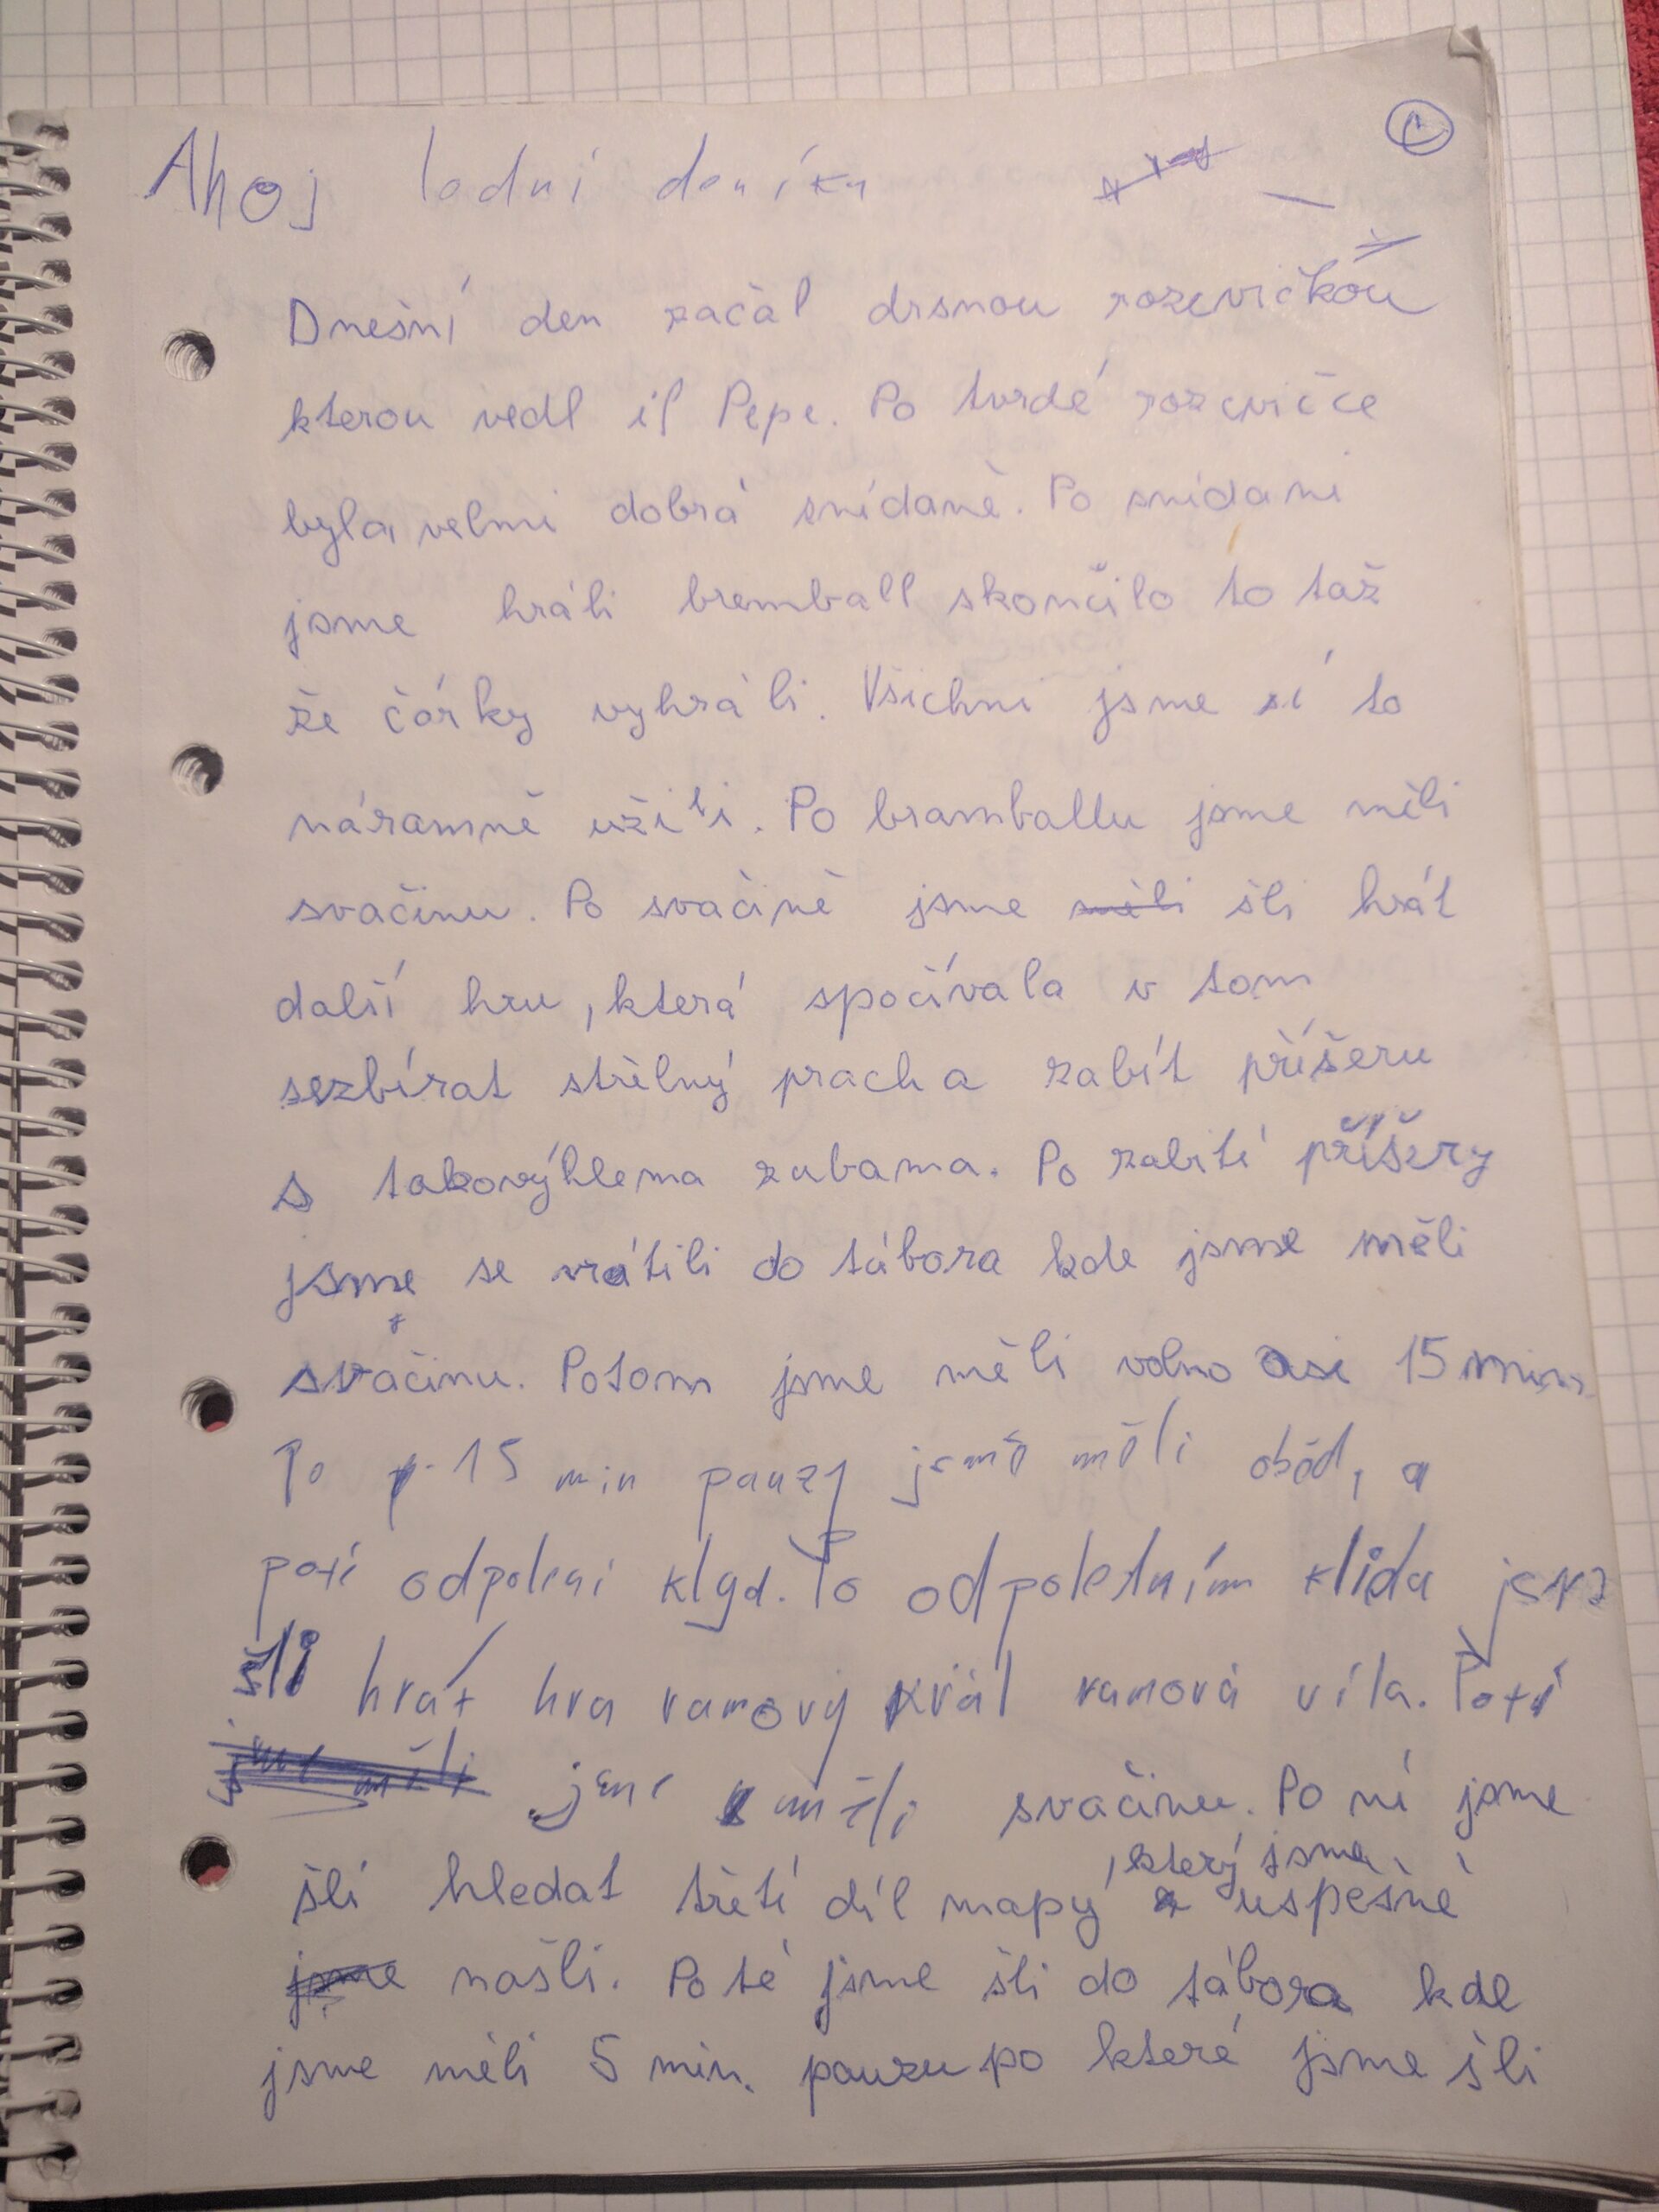 Ahoj lodní deníku
Dnešní den začal drsnou rozcvičkou
kterou vedl il Pepe. Po tvrdé rozcvičce
byla velmi dobrá snídaně. Po snídani
jsme hráli bremball skončilo to taž
že čárky vyhráli. Všichni jsme si to
náramně užili. Po bramballu jsme měli
svačinu. Po svačině jsme měli šli hrát
další hru, která spočívala v tom
sezbírat střelný prach a zabít příšeru
s takovýhlema zubama. Po zabití příšery
jsme se vrátili do tábora kde jsme měli
svačinu. Potom jsme měli volno asi 15 min
Po 15 min pauzy jsme měli oběd, a
poté odpolení klyd. Po odpoledním klidu jsme
šli hrát hra vanový král vanová víla. Poté
jsme měli jsme měli svačinu. Po ní jsme
šli hledat třetí díl mapy, který jsme úspěšně
jsme našli. Poté jsme šli do tábora kde
jsme měli 5 min. pauzu po které jsme šli